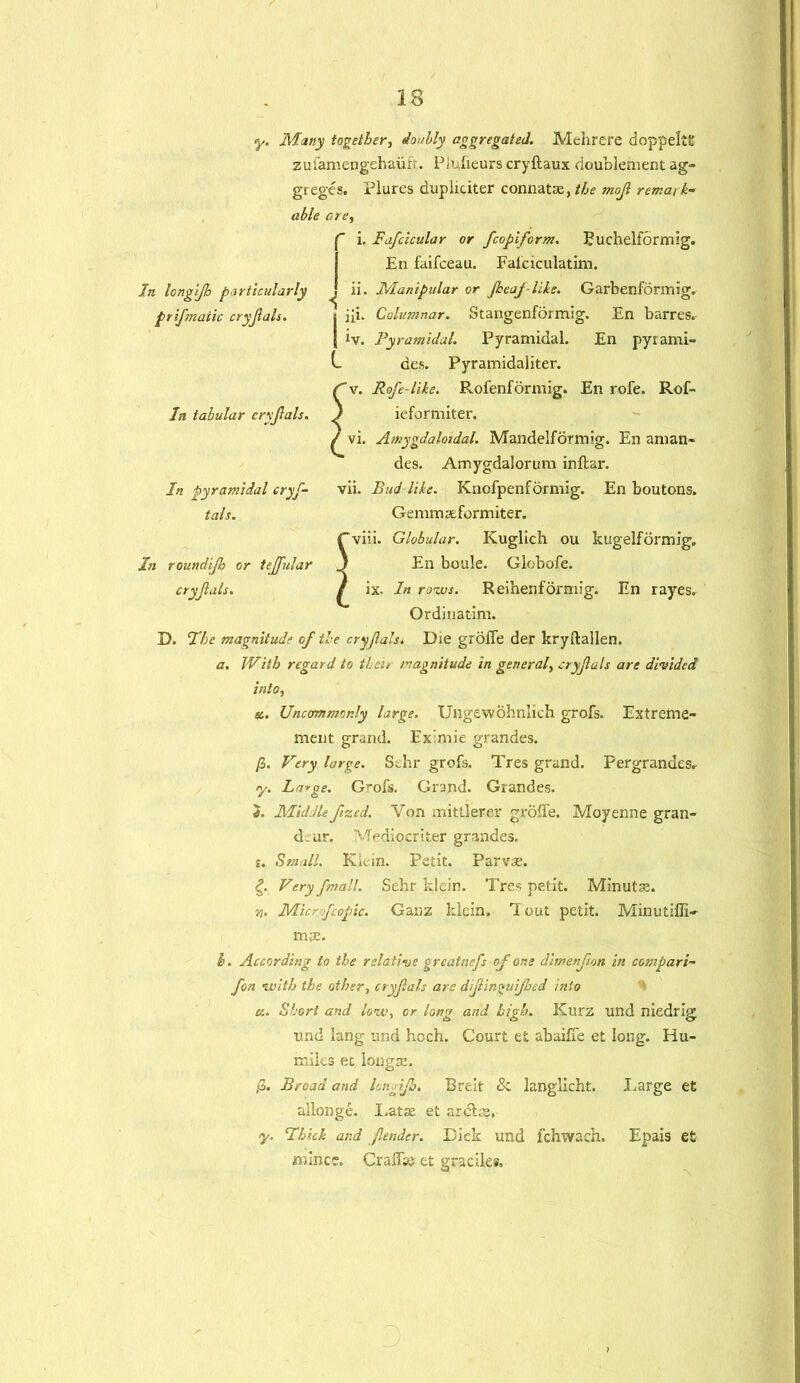 18
γ. Many together, doubly aggregated. Mehrere doppelte
zuſamengehaüft. Pluſieurs cryſtaux doublement ag-
greges. Plures dupliciter connatæ, the moſt remark-
able are,
i. Faſcicular or ſcopiform. Buchelförmig.
En faiſceau. Faſciculatim.
In longiſh particularly
priſmatic cryſtals.
ii. Manipular or ſheaf-like. Garbenförmig.
iii. Columnar. Stangenförmig. En barres.
iv. Pyramidal. Pyramidal. En pyrami-
des. Pyramidaliter.
In tabular cryſtals.
v. Roſe-like. Roſenförmig. En roſe. Roſ-
ieformiter.
vi. Amygdaloidal. Mandelförmig. En aman-
des. Amygdalorum inſtar.
In pyramidal cryſ-
tals.
vii. Bud like. Knoſpenförmig. En boutons.
Gemmæformiter.
In roundiſh or teſſular
cryſtals.
viii. Globular. Kuglich ou kugelförmig.
En boule. Globoſe.
ix. In rows. Reihenförmig. En rayes.
Ordinatim.
D. The magnitude of the cryſtals. Die gröſſe der kryſtallen.
a. With regard to their magnitude in general, cryſtals are divided
into,
α. Uncommonly large. Ungewöhnlich groſs. Extreme-
ment grand. Eximie grandes.
β. Very large. Sehr groſs. Tres grand. Pergrandes.
γ. Large. Groſs. Grand. Grandes.
δ. Middle ſized. Von mittlerer gröſſe. Moyenne gran-
deur. Mediocriter grandes.
ε. Small. Klein. Petit. Parvæ.
ζ. Very ſmall. Sehr klein. Tres petit. Minutæ.
η. Microſcopic. Ganz klein. Tout petit. Minutiſſi-
mæ.
b. According to the relative greatneſs of one dimenſion in compari-
ſon with the other, cryſtals are diſtinguiſhed into
α. Short and low, or long and high. Kurz und niedrig
und lang und hoch. Court et abaiſſe et long. Hu-
miles et longæ.
β. Broad and longiſh. Breit & langlicht. Large et
allongé. Latæ et arctæ.
γ. Thick and ſlender. Dick und ſchwach. Epais et
mince. Craſſæ et graciles.